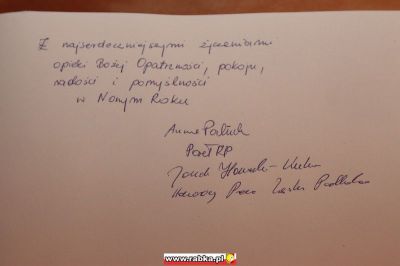 Z najserdeczniejszymi życzeniami
opieki Bożej Opatrzności, pokoju,
radości i pomyślności
w Nowym Roku
Anna Paluch
Poseł RP
Honorowy Prezes
www.rabka.pl